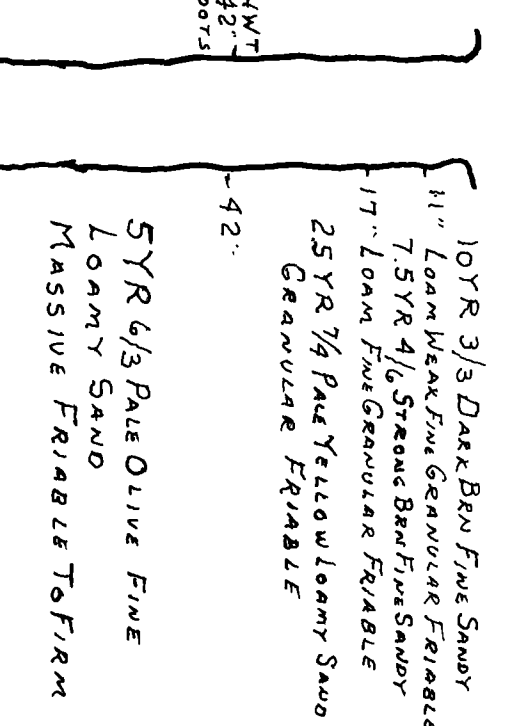 10YR 3/3 DARK BRN FINE SANDY
11" LOAM WEAK FINE GRANULAR FRIABLE
7.5YR 4/6 STRONG BRN FINE SANDY
17" LOAM FINE GRANULAR FRIABLE
25YR 7/4 PALE YELLOW LOAMY SAND
GRANULAR FRIABLE
42"
5YR 6/3 PALE OLIVE FINE
LOAMY SAND
MASSIVE FRIABLE TO FIRM
HWT
42"
OOTS